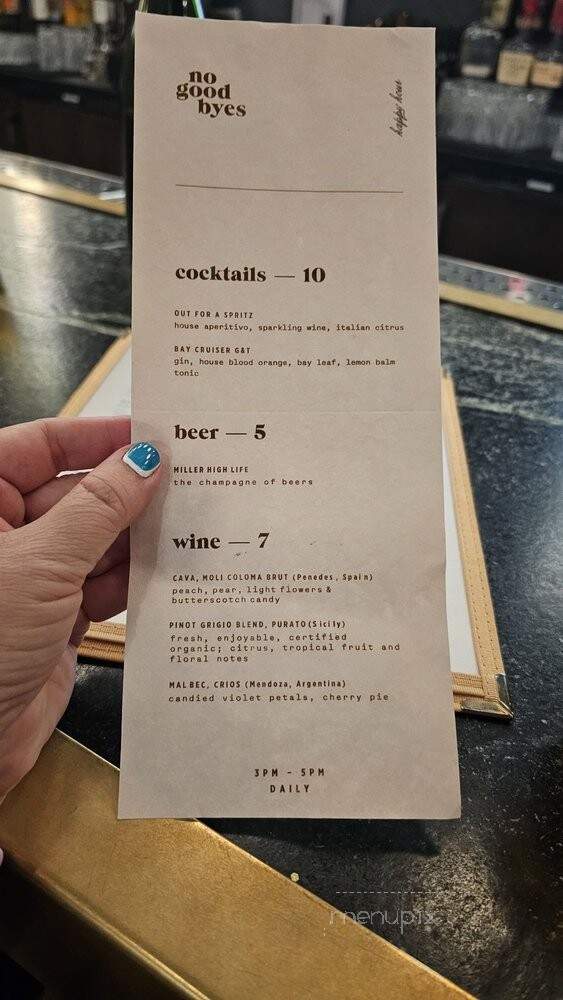 no
good
byes
happy hour
cocktails — 10
OUT FOR A SPRITZ
house aperitivo, sparkling wine, italian citrus
BAY CRUISER G&T
gin, house blood orange, bay leaf, lemon balm
tonic
beer — 5
MILLER HIGH LIFE
the champagne of beers
wine — 7
CAVA, MOLI COLOMA BRUT (Penedes, Spain)
peach, pear, light flowers &
butterscotch candy
PINOT GRIGIO BLEND, PURATO (Sicily)
fresh, enjoyable, certified
organic; citrus, tropical fruit and
floral notes
MALBEC, CRIOS (Mendoza, Argentina)
candied violet petals, cherry pie
3PM - 5PM
DAILY
menupix